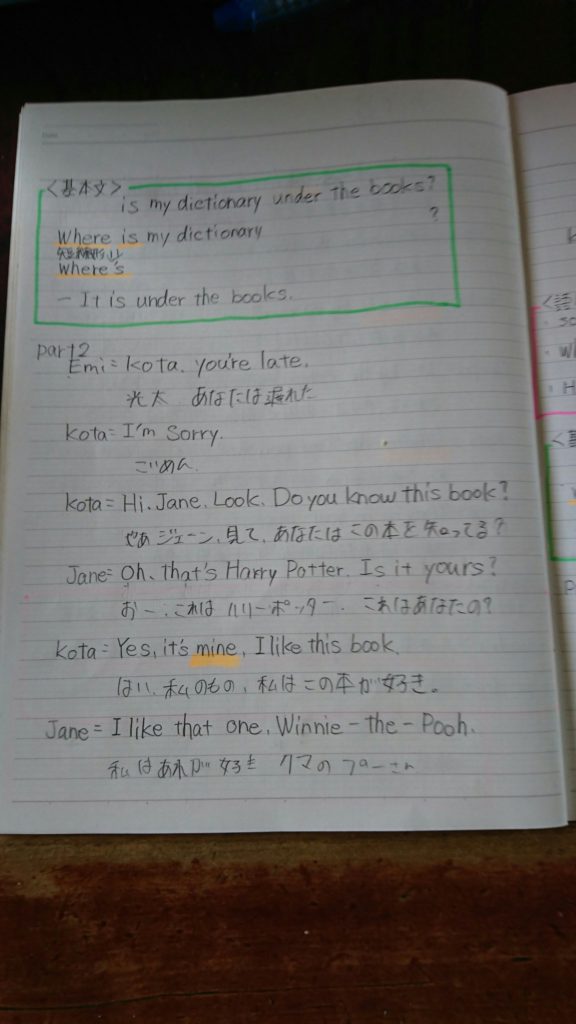 Date
<基本文>
is my dictionary under the books?
Where is my dictionary ?
短縮形
Where's
— It is under the books.
part2
Emi= kota. you're late.
光太 あなたは遅れた
kota= I'm Sorry.
ごめん.
kota= Hi. Jane. Look. Do you know this book?
やあ ジェーン. 見て. あなたは この本を 知ってる?
Jane= Oh. that's Harry Potter. Is it yours?
おー. これは ハリーポッター. これはあなたの?
kota= Yes, it's mine, I like this book.
はい. 私のもの. 私はこの本が好き。
Jane= I like that one, Winnie-the-Pooh.
私はあれが好き クマのプーさん
<語
<